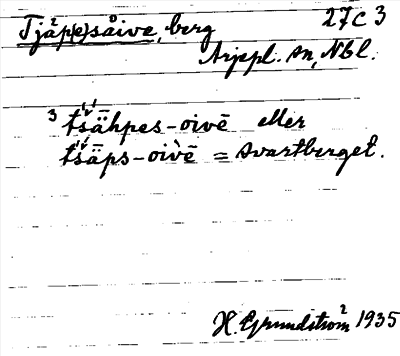 Tjäp(e)såive, berg 27C3
Arjeppl. sn, Nbl.
³ tsähpes-oivē eller
tsäps-oivē = Svartberget.
H. Grundström 1935